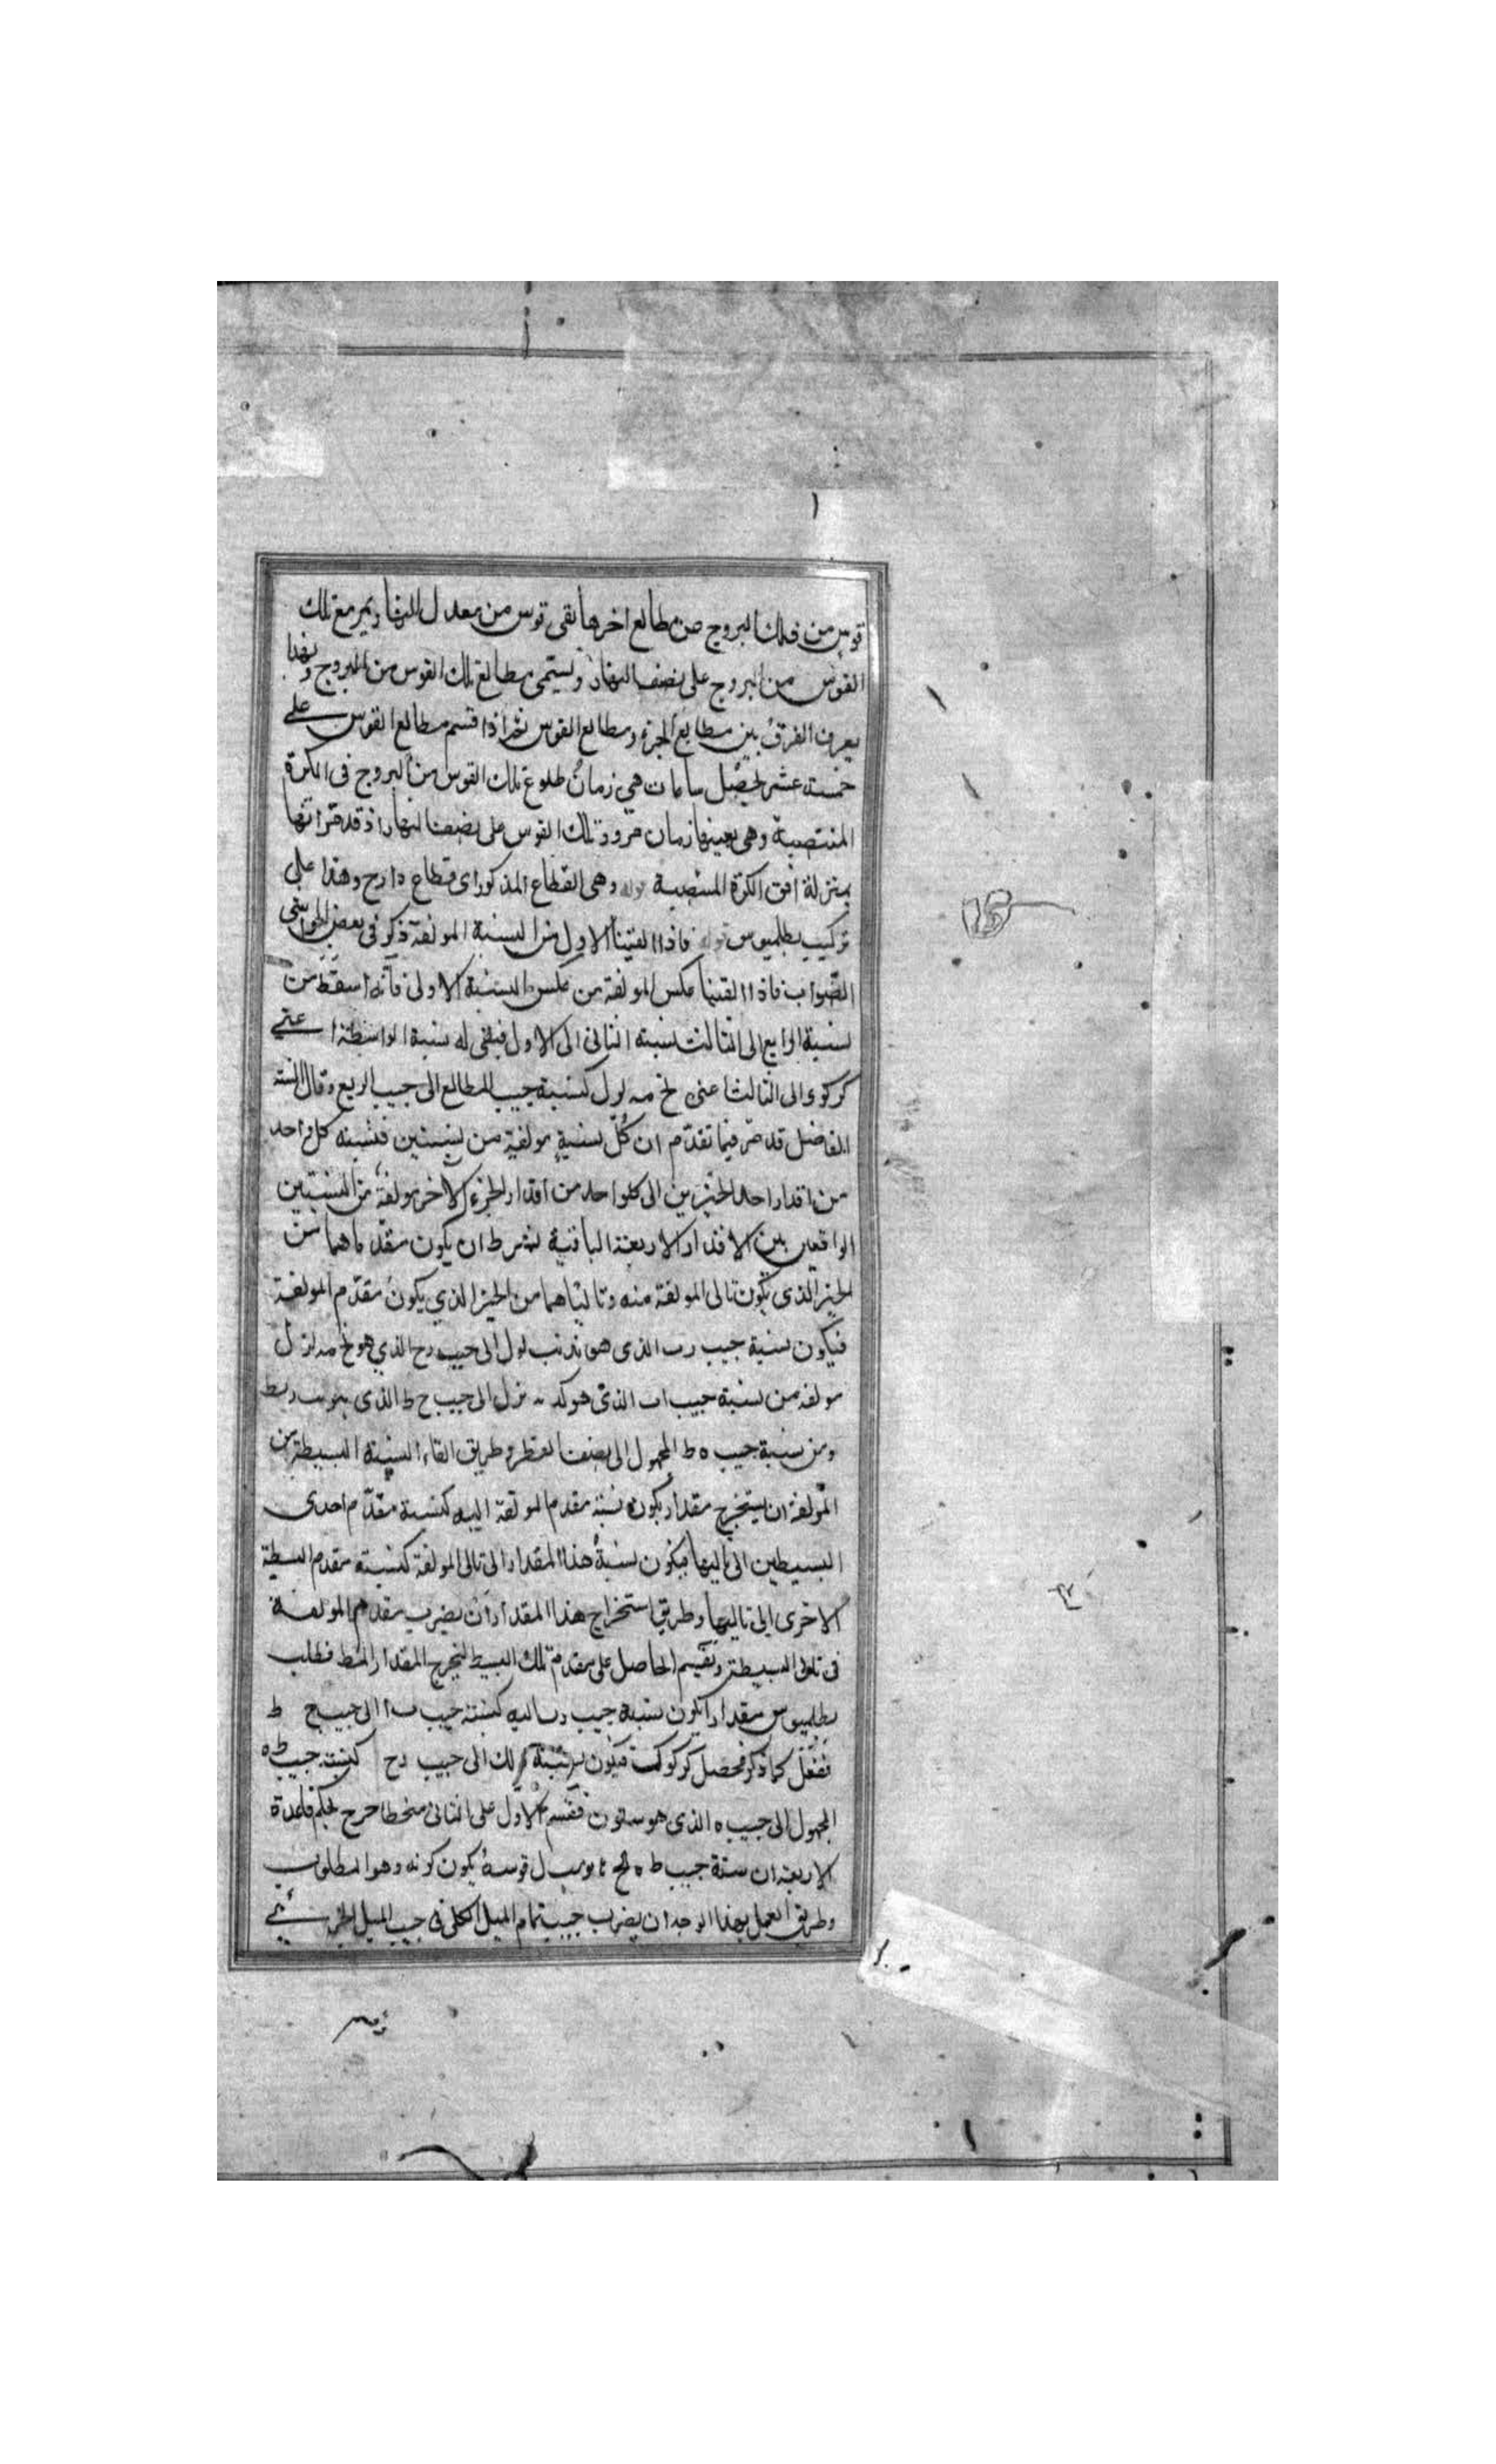 قوس من فلك البروج من مطالع اخرها بقى قوس من معدل النهار يمر مع تلك
القوس من البروج على نصف النهار ويسمى مطالع تلك القوس من البروج وبهذا
يعرف الفرق بين مطالع الجزء ومطالع القوس ثم اذا قسم مطالع القوس على
خمسة عشر يحصل ساعات هى زمان طلوع تلك القوس من البروج فى الكرة
المنتصبة وهى بعينها زمان مرور تلك القوس على نصف النهار اذ قد مر انها
بمنزلة افق الكرة المنتصبة قوله وهى القطاع المذكور اى قطاع دارح وهذا على
تركيب بطلميوس قوله فاذا القينا الاول من النسبة المولفة ذكر فى بعض الحواشى
الصواب فاذا القينا عكس المولفة من عكس النسبة الاولى فانه اسقط من
نسبة الرابع الى الثالث نسبة الثانى الى الاول فبقى له نسبة الواسطة اعنى
كركوى الى الثالث اعنى لح مه لول كنسبة جيب المطالع الى جيب الربع وقال
الفاضل قد مر فيما تقدم ان كل نسبة مولفة من نسبتين فنسبة كل واحد
من اقدار احد الحيزين الى كل واحد من اقدار الحيز الاخر مولفة من النسبتين
الواقعين بين الاقدار الاربعة الباقية بشرط ان يكون مقدماهما من
الحيز الذى يكون تالى المولفة منه وتالياهما من الحيز الذي يكون مقدم المولفة
فيكون نسبة جيب رب الذى هو لول الى جيب رح الذي هو لح مه لرل
مولفه من نسبة جيب اب الذى هو كد نرل الى جيب ح ط الذى
ومن نسبة جيب ه ط المجهول الى نصف القطر وطريق القاء النسبة البسيطة من
المولفة ان يستخرج مقدار يكون نسبة مقدم المولفة اليه كنسبة مقدم احدى
البسيطين الى تاليها فيكون نسبة هذا المقدار الى تالى المولفة كنسبة مقدم البسيطة
الاخرى الى تاليها وطريق استخراج هذا المقدار ان يضرب مقدم المولفة
فى تالى البسيطة ونقسم الحاصل على مقدم تلك البسيط ليخرج المقدار فطلب
بطلميوس مقدارا يكون نسبة جيب رب اليه كنسبة جيب ب ا الى جيب ح ط
ففعل كما ذكر فحصل كركوك فيكون نسبة ذلك الى جيب رح كنسبة جيب ط ه
المجهول الى جيب ه الذى هو ستون فقسم الاول على الثانى منحطا خرج بحكم قاعدة
الاربعة ان ستة جيب ط ه قوسه يكون كونه وهو المطلوب
وطريق العمل بهذا الوجه ان يضرب جيب تمام الميل الكلى فى جيب الميل الجزئى